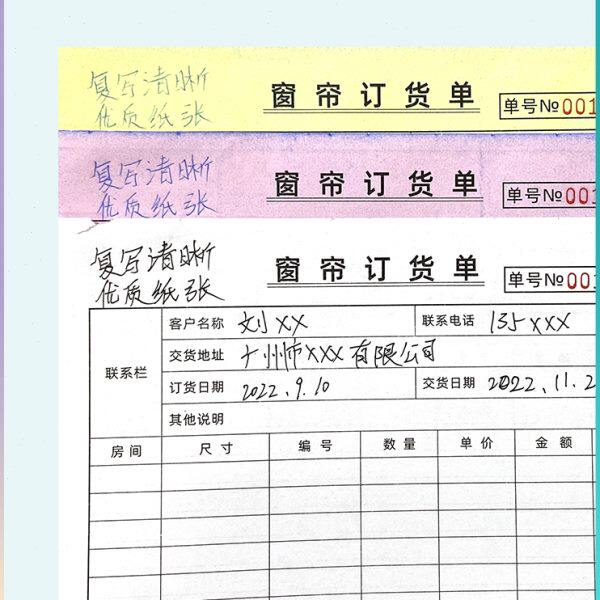 复写清晰
优质纸张
窗帘订货单
单号№001
复写清晰
优质纸张
窗帘订货单
单号№001
复写清晰
优质纸张
窗帘订货单
单号№001
联系栏
客户名称 刘XX 联系电话 135XXX
交货地址 广州市XXX有限公司
订货日期 2022.9.10 交货日期 2022.11.2
其他说明
房间 尺寸 编号 数量 单价 金额